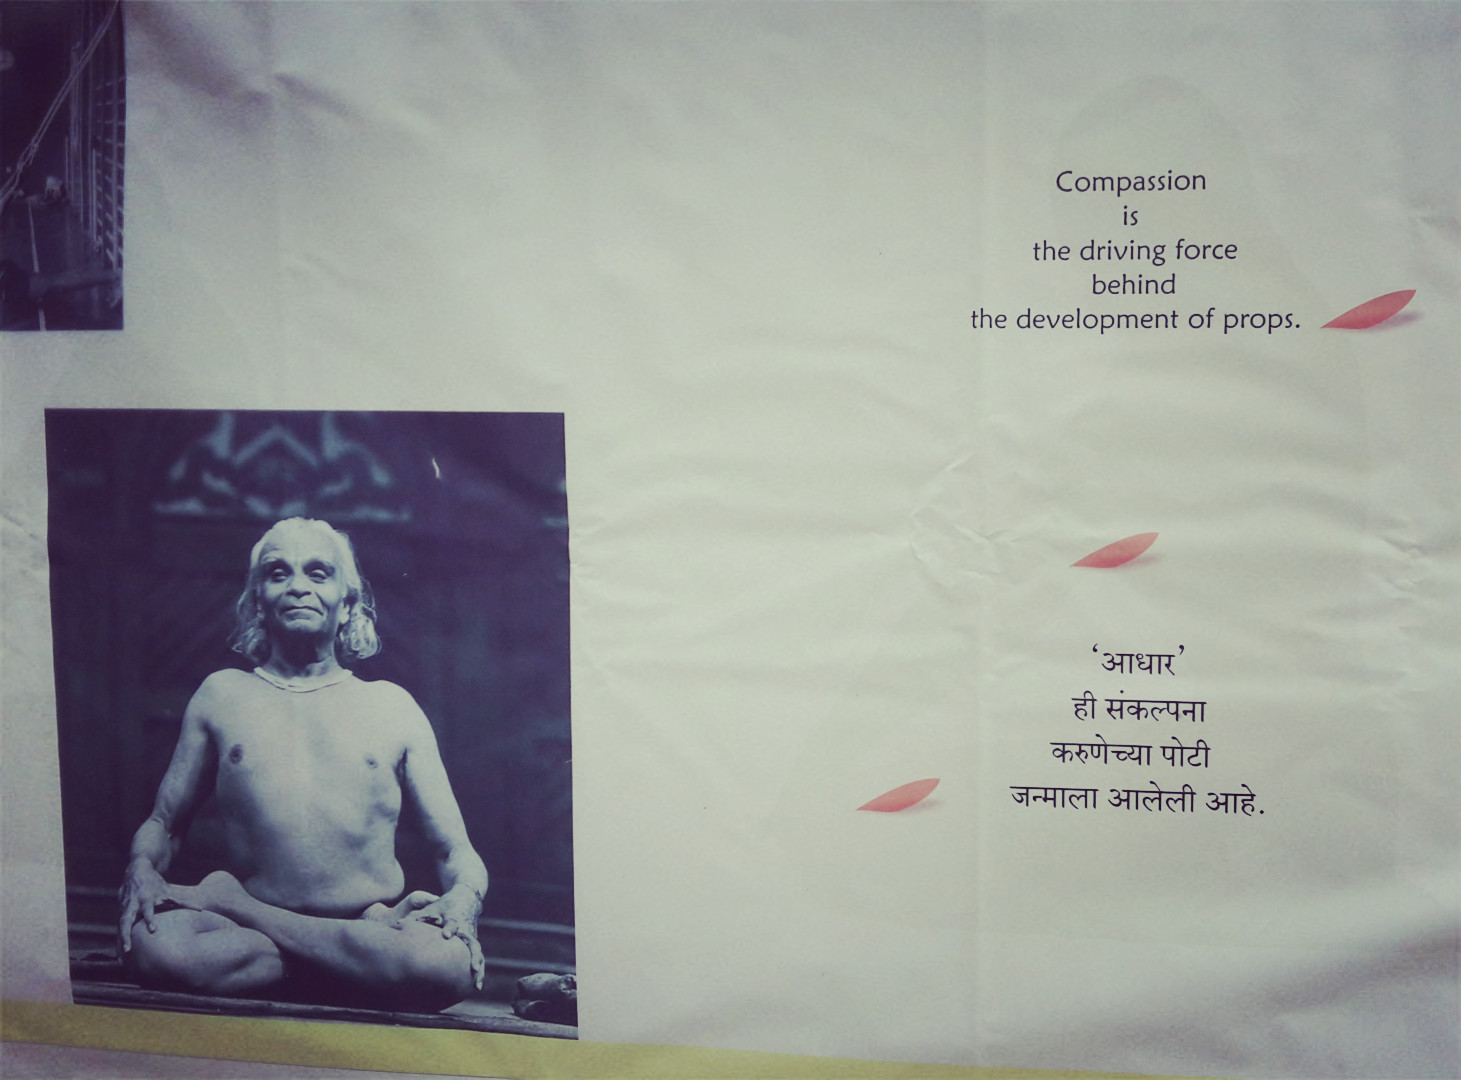 Compassion
is
the driving force
behind
the development of props.
‘आधार’
ही संकल्पना
करुणेच्या पोटी
जन्माला आलेली आहे.